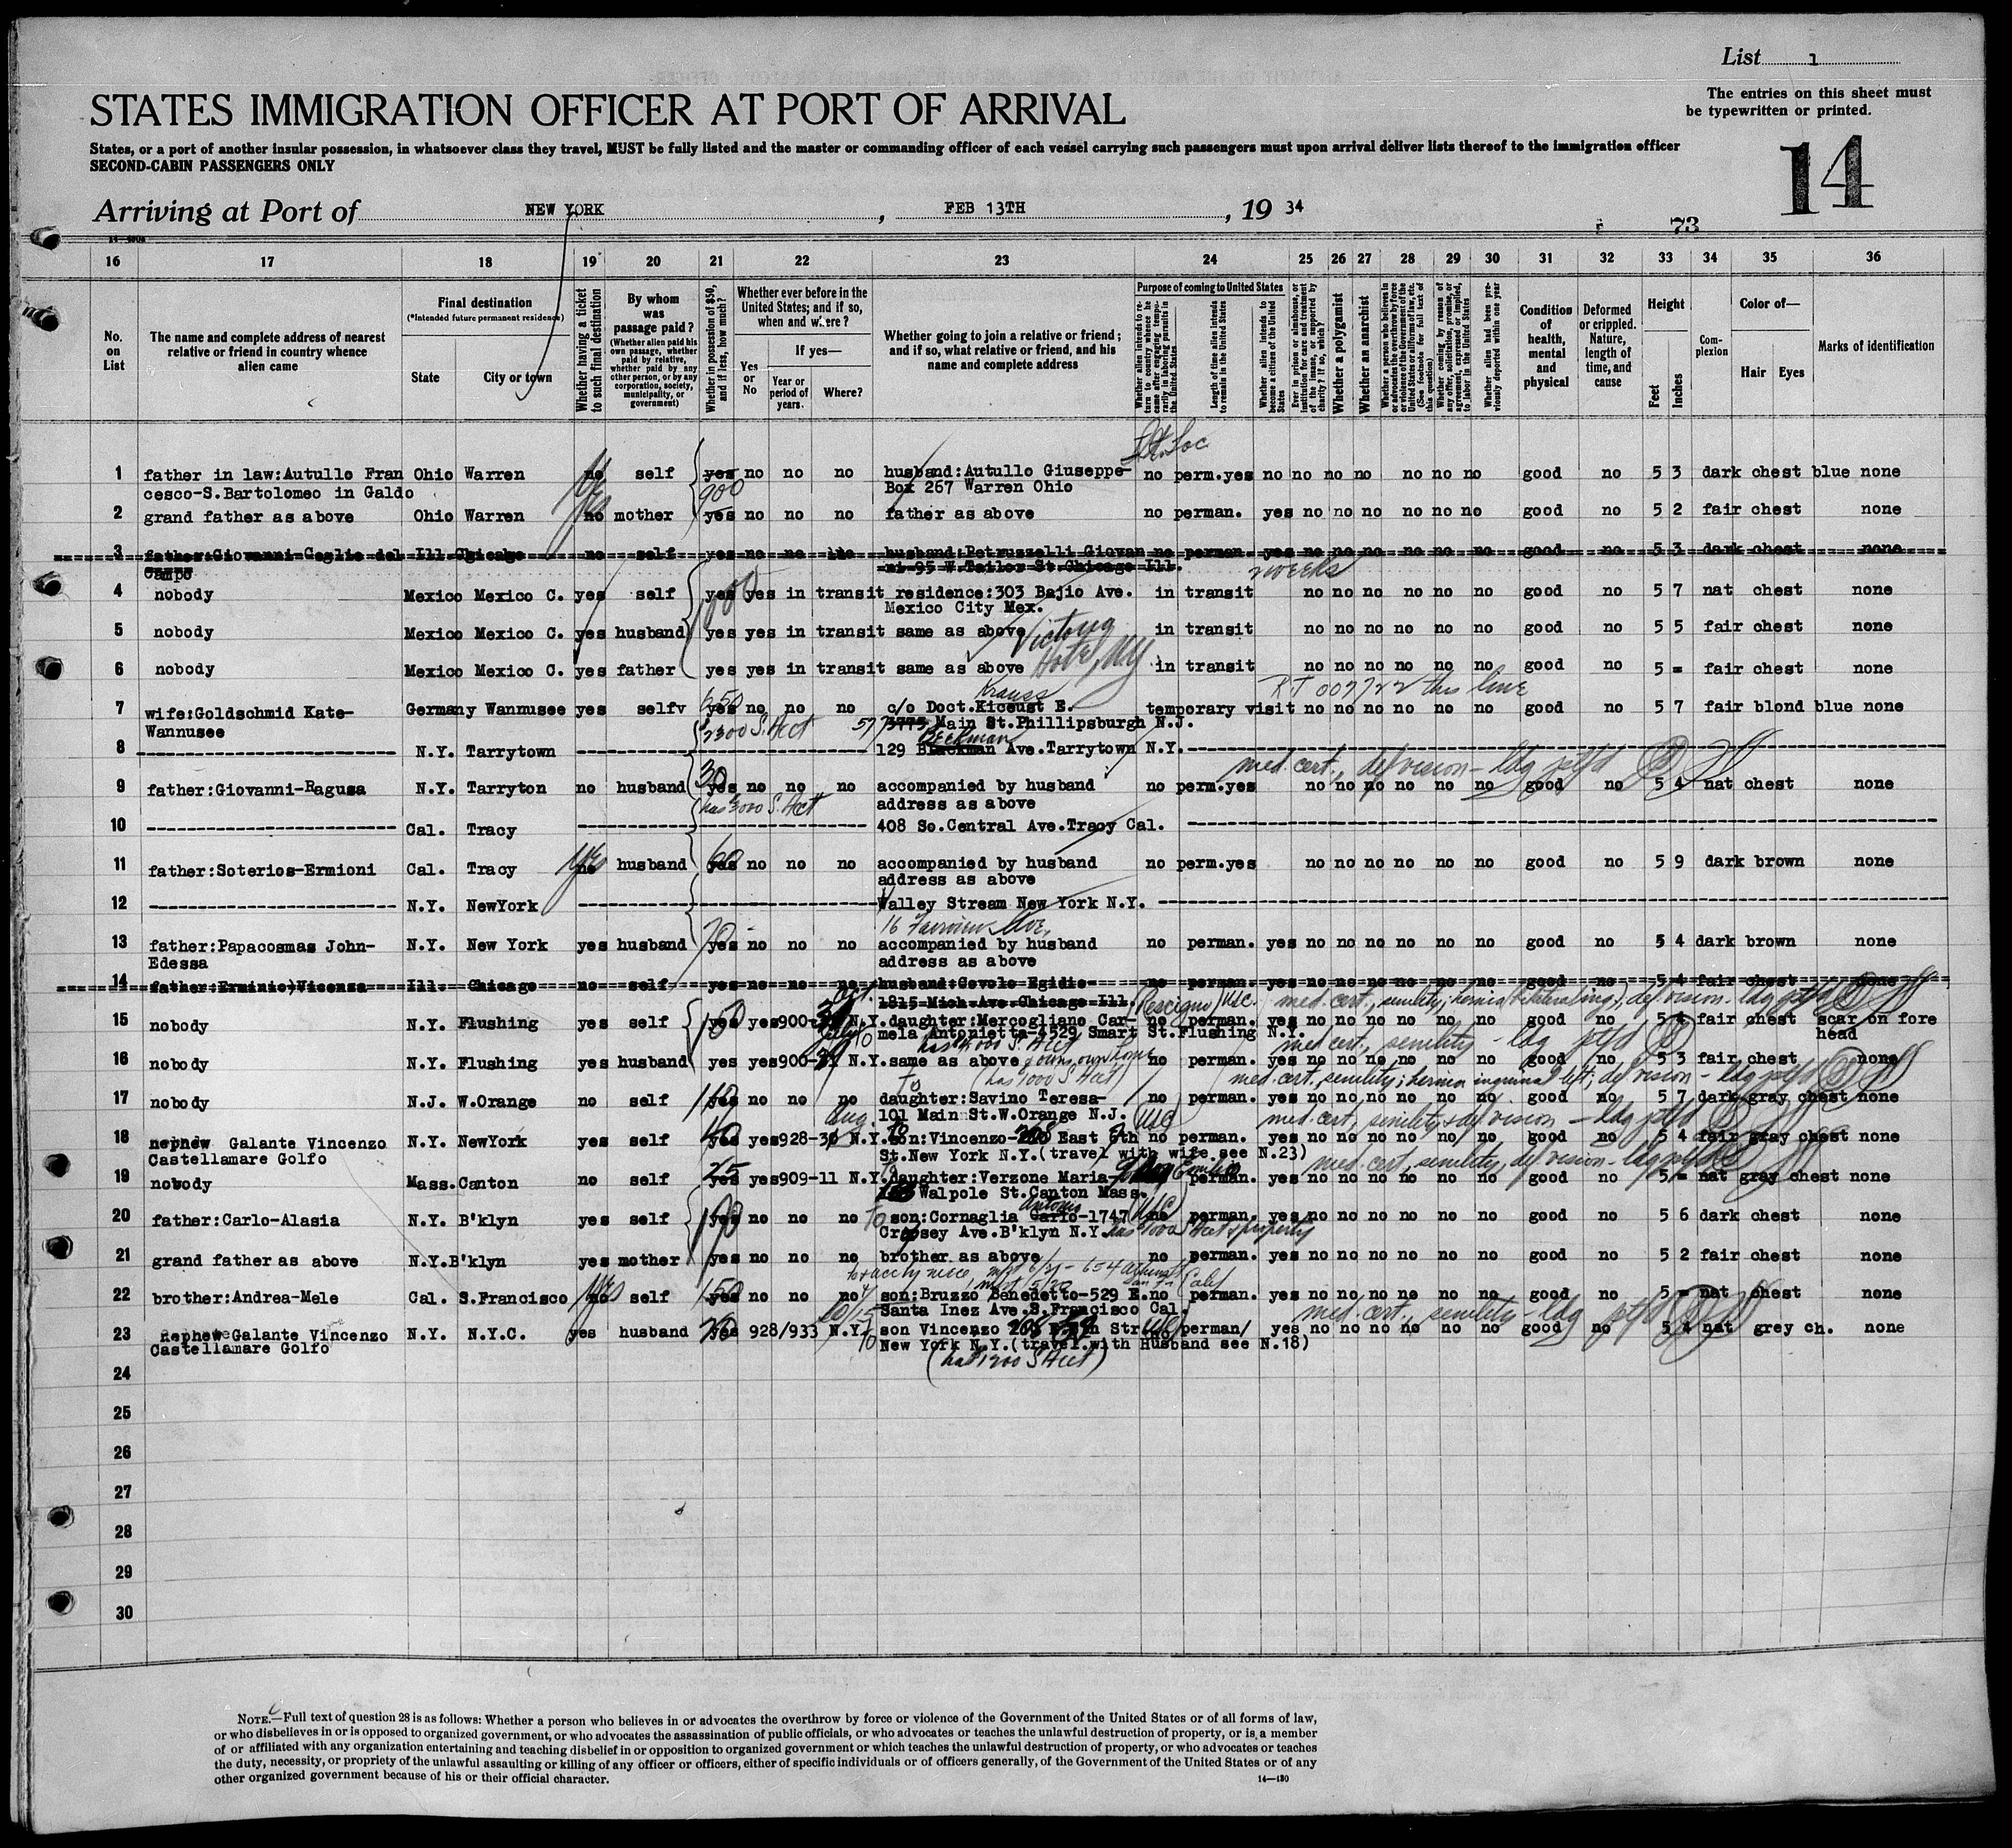 List 1
STATES IMMIGRATION OFFICER AT PORT OF ARRIVAL
The entries on this sheet must
be typewritten or printed.
States, or a port of another insular possession, in whatsoever class they travel, MUST be fully listed and the master or commanding officer of each vessel carrying such passengers must upon arrival deliver lists thereof to the immigration officer
SECOND-CABIN PASSENGERS ONLY
14
Arriving at Port of NEW YORK, FEB 13TH, 19 34
73
16 17 18 19 20 21 22 23 24 25 26 27 28 29 30 31 32 33 34 35 36
No. on List
The name and complete address of nearest relative or friend in country whence alien came
Final destination
(*Intended future permanent residence)
State City or town
Whether having a ticket to such final destination
By whom was passage paid?
(Whether alien paid his own passage, whether paid by relative, whether paid by any other person, or by any corporation, society, municipality, or government)
Whether in possession of $50, and if less, how much?
Whether ever before in the United States; and if so, when and where?
If yes—
Yes or No
Year or period of years.
Where?
Whether going to join a relative or friend; and if so, what relative or friend, and his name and complete address
Purpose of coming to United States
Whether alien intends to return to country whence he came after engaging temporarily in laboring pursuits in the United States
Length of time alien intends to remain in the United States
Whether alien intends to become a citizen of the United States
Ever in prison or almshouse, or institution for care and treatment of the insane, or supported by charity? If so, which?
Whether a polygamist
Whether an anarchist
Whether a person who believes in or advocates the overthrow by force or violence of the Government of the United States or all forms of law, etc. (See footnote for full text of this question)
Whether coming by reason of any offer, solicitation, promise, or agreement, expressed or implied, to labor in the United States
Whether alien had been previously deported within one year
Condition of health, mental and physical
Deformed or crippled. Nature, length of time, and cause
Height
Feet Inches
Complexion
Color of—
Hair Eyes
Marks of identification
1 father in law:Autullo Fran Ohio Warren no yes self yes 900 no no no husband:Autullo Giuseppe- no perm.yes no no no no no no no good no 5 3 dark chest blue none
cesco-S.Bartolomeo in Galdo Box 267 Warren Ohio
2 grand father as above Ohio Warren no yes mother yes no no no father as above no perman. yes no no no no no no good no 5 2 fair chest none
3 father:Giovanni-Ceglie del Ill.Chicago no self yes no no no husband:Petruzzelli Giovan no perman. yes no no no no no no good no 5 3 dark chest none
Campo ni-95 W.Tailor St.Chicago Ill.
2 weeks
4 nobody Mexico Mexico C. yes self yes yes in transit residence:303 Bajio Ave. in transit no no no no no no good no 5 7 nat chest none
Mexico City Mex.
5 nobody Mexico Mexico C. yes husband yes yes in transit same as above in transit no no no no no no good no 5 5 fair chest none
Victoria Hotel, NY
6 nobody Mexico Mexico C. yes father yes yes in transit same as above in transit no no no no no no good no 5 = fair chest none
Krauss
7 wife:Goldschmid Kate- Germany Wannusee yes selfv yes 650 no no no c/o Doct.Kiceust E. temporary visit no no no no no no good no 5 7 fair blond blue none
Wannusee Main St.Phillipsburgh N.J.
$2300 S. Acct
Beekman
8 N.Y. Tarrytown 129 Blackman Ave.Tarrytown N.Y.
med. cert., def vision - ldg
9 father:Giovanni-Ragusa N.Y. Tarryton no husband yes 30 no no no accompanied by husband no perm.yes no no no no no no good no 5 4 nat chest none
address as above
has 3000 S. Acct
10 Cal. Tracy 408 So.Central Ave.Tracy Cal.
11 father:Soterios-Ermioni Cal. Tracy no yes husband yes 60 no no no accompanied by husband no perm.yes no no no no no no good no 5 9 dark brown none
address as above
12 N.Y. NewYork Valley Stream New York N.Y.
16 Fairview Ave,
13 father:Papacosmas John- N.Y. New York yes husband yes 70 no no no accompanied by husband no perman. yes no no no no no no good no 5 4 dark brown none
Edessa address as above
14 father:Erminio)Vicenza Ill. Chicago no self yes no no no husband:Covolo Egidio- no perman. yes no no no no no no good no 5 4 fair chest none
1815 Mich.Ave.Chicago Ill.
med. cert., senility; hernia
15 nobody N.Y. Flushing yes self yes yes 900- N.Y. daughter:Mercogliano Car- no perman. yes no no no no no no good no 5 4 fair chest scar on fore
mela Antonietta-4529 Smart St.Flushing N.Y. head
med cert., senility - ldg
16 nobody N.Y. Flushing yes husband yes yes 900- N.Y. same as above no perman. yes no no no no no no good no 5 3 fair chest none
(has 1000 S Acct)
med. cert. senility; hernia inguinal left; def vision - ldg
17 nobody N.J. W.Orange no self yes no no no daughter:Savino Teresa- no perman. yes no no no no no no good no 5 7 dark gray chest none
101 Main St.W.Orange N.J.
Aug.
med. cert., senility & def vision - ldg
18 nephew Galante Vincenzo N.Y. NewYork yes self yes 40 yes 928-30 N.Y. son:Vincenzo- East 6th no perman. yes no no no no no no good no 5 4 fair gray chest none
Castellamare Golfo St.New York N.Y.(travel with wife see N.23)
med. cert., senility, def. vision - ldg
19 nobody Mass.Canton no self yes 25 yes 909-11 N.Y. daughter:Verzone Maria- perman. yes no no no no no no good no 5 = nat gray chest none
Walpole St.Canton Mass.
Antonio
20 father:Carlo-Alasia N.Y. B'klyn yes self yes no no no son:Cornaglia Carlo-1747 no perman. yes no no no no no no good no 5 6 dark chest none
Cropsey Ave.B'klyn N.Y.
21 grand father as above N.Y.B'klyn yes mother yes no no no brother as above no perman. yes no no no no no no good no 5 2 fair chest none
22 brother:Andrea-Mele Cal. S.Francisco no yes self yes 150 no no no son:Bruzzo Benedetto-529 E. no perman. yes no no no no no no good no 5 = nat chest none
Santa Inez Ave.S.Francisco Cal.
med. cert., senility - ldg
23 Nephew Galante Vincenzo N.Y. N.Y.C. yes husband yes 20 928/933 N.Y. son Vincenzo Str no perman/ yes no no no no no no good no 5 4 nat grey ch. none
Castellamare Golfo New York N.Y.(travel.with Husband see N.18)
(has 1200 S Acct)
24
25
26
27
28
29
30
NOTE.—Full text of question 28 is as follows: Whether a person who believes in or advocates the overthrow by force or violence of the Government of the United States or of all forms of law,
or who disbelieves in or is opposed to organized government, or who advocates the assassination of public officials, or who advocates or teaches the unlawful destruction of property, or is a member
of or affiliated with any organization entertaining and teaching disbelief in or opposition to organized government or which teaches the unlawful destruction of property, or who advocates or teaches
the duty, necessity, or propriety of the unlawful assaulting or killing of any officer or officers, either of specific individuals or of officers generally, of the Government of the United States or of any
other organized government because of his or their official character.
14—130